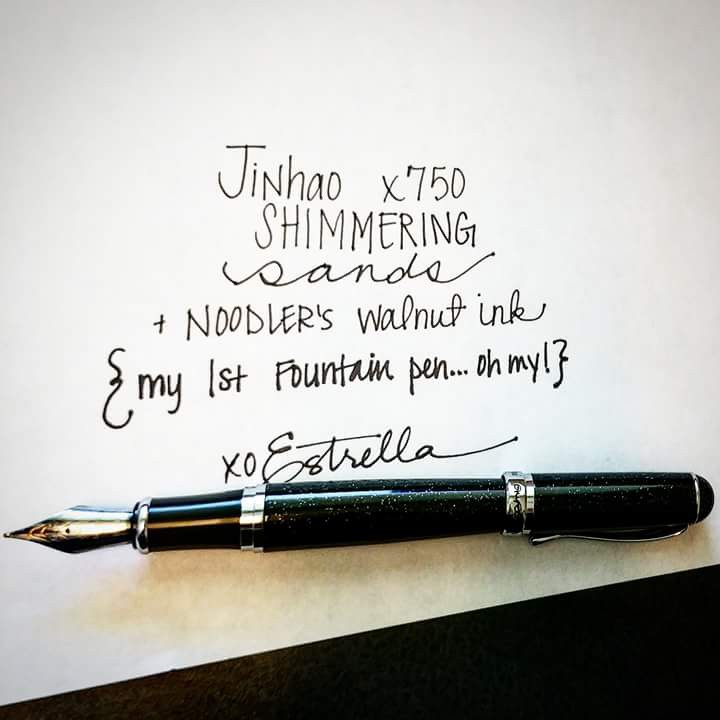 Jinhao x750
SHIMMERING
sands
+ NOODLER's walnut ink
{my 1st Fountain pen... oh my!}
xo Estrella